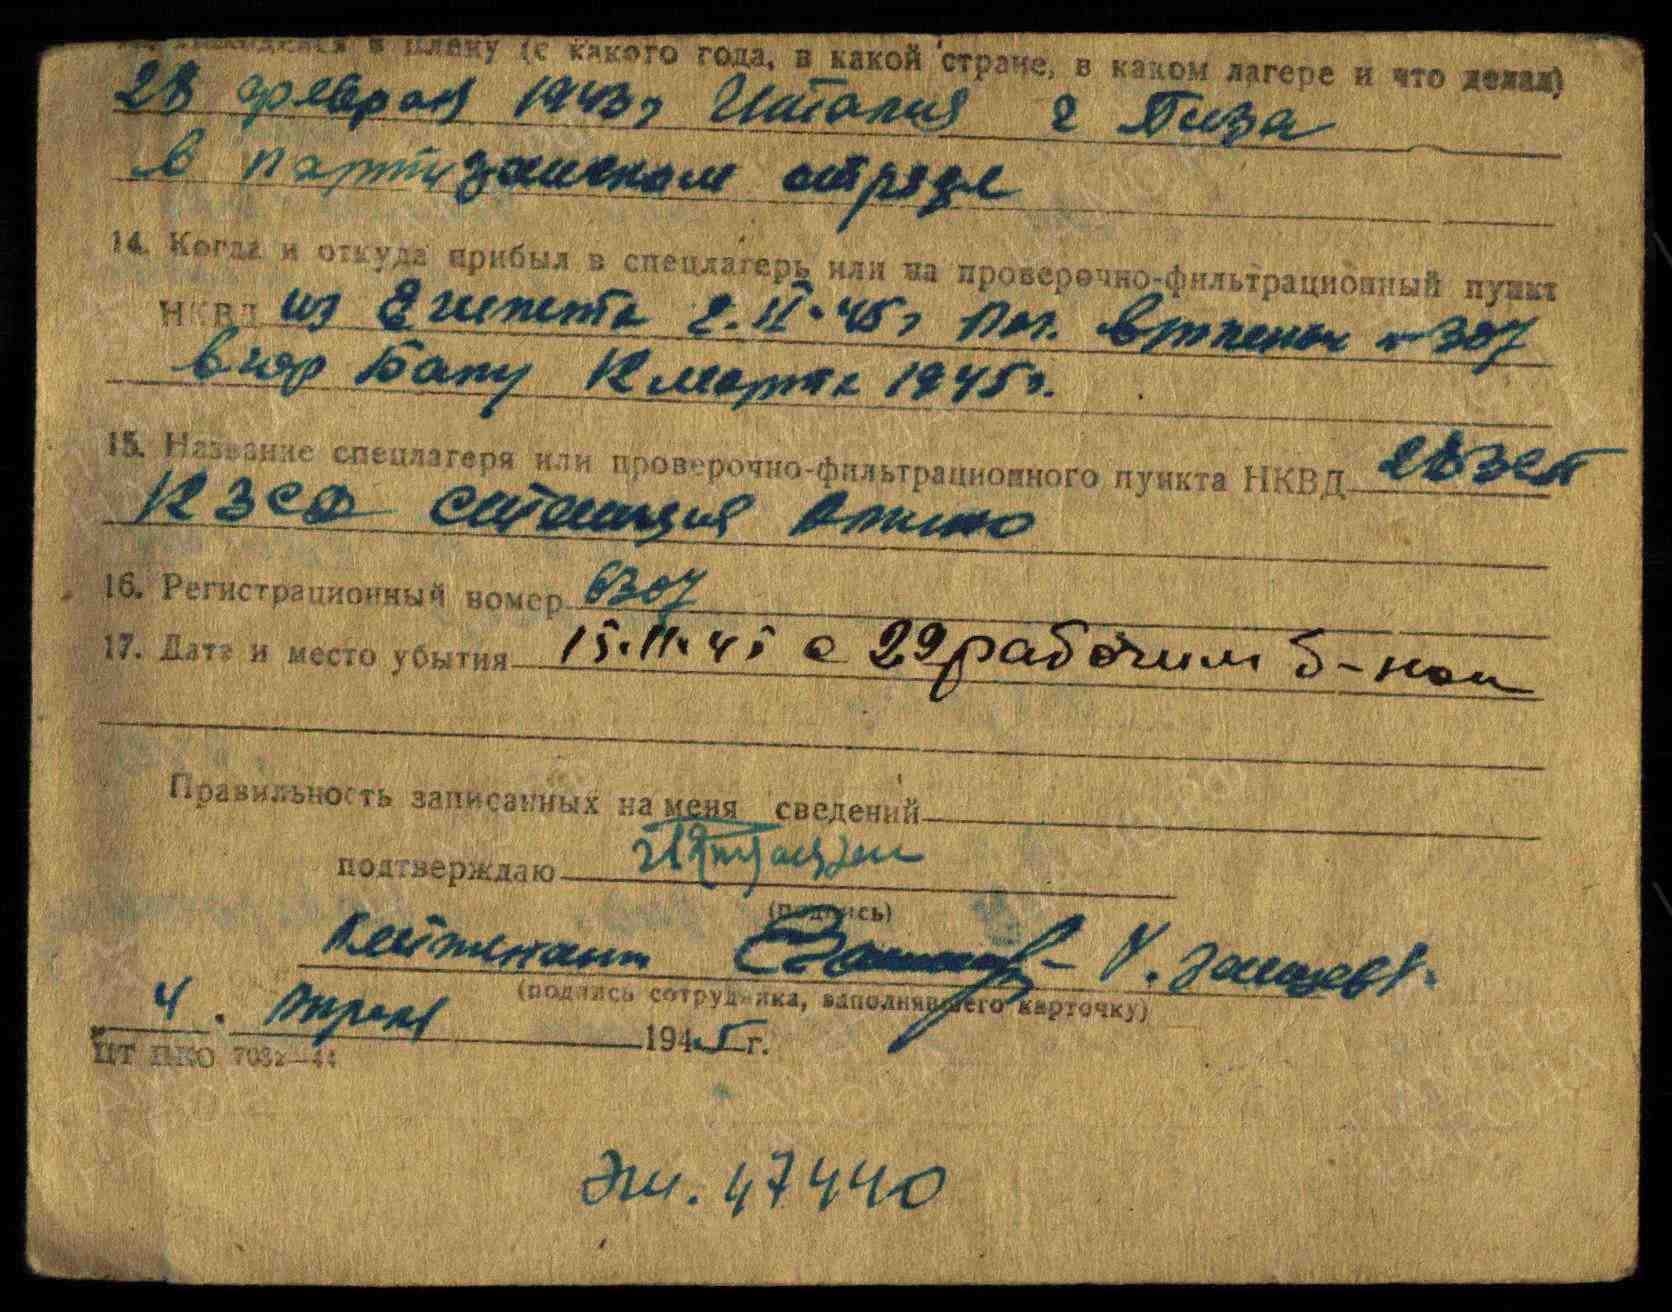 находился в плену (с какого года, в какой стране, в каком лагере и что делал)
28 февраля 1943г Италия г Пиза
в партизанском отряде
14. Когда и откуда прибыл в спецлагерь или на проверочно-фильтрационный пункт
НКВД из Египета 2.II.45г эшеленом 307
в гор Баку 12 марта 1945г.
15. Название спецлагеря или проверочно-фильтрационного пункта НКВД 28 ЗСП
КЗСД станция Аляты
16. Регистрационный номер 6307
17. Дата и место убытия 15.II.45 с 29 рабочим б-ном
Правильность записанных на меня сведений
подтверждаю
(подпись)
Лейтенант
(подпись сотрудника, заполнявшего карточку)
4. Апреля 1945 г.
ЦТ НКО 7032—44
Эш. 47440